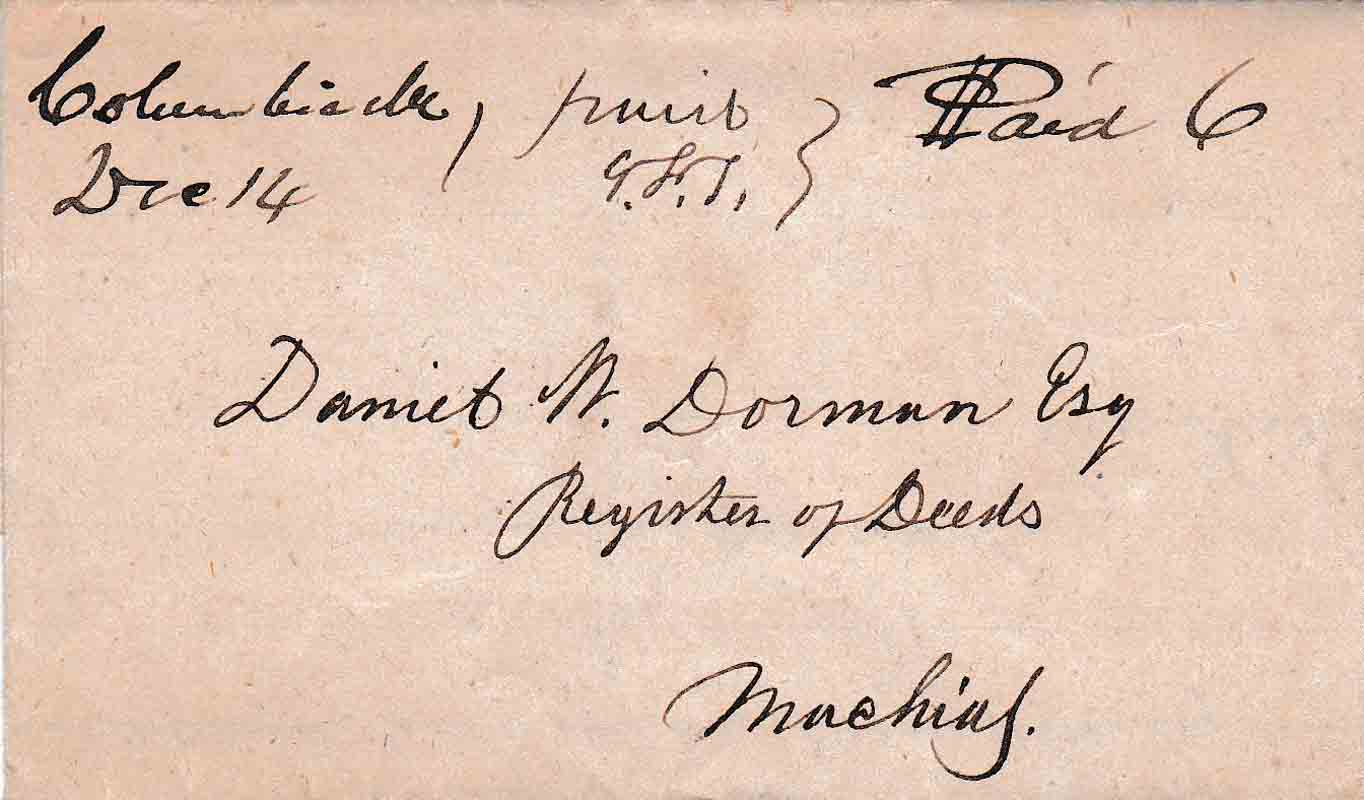 Columbia Me, paid } Paid 6
Dec 14
Daniel W. Dorman Esq
Register of Deeds
Machias.